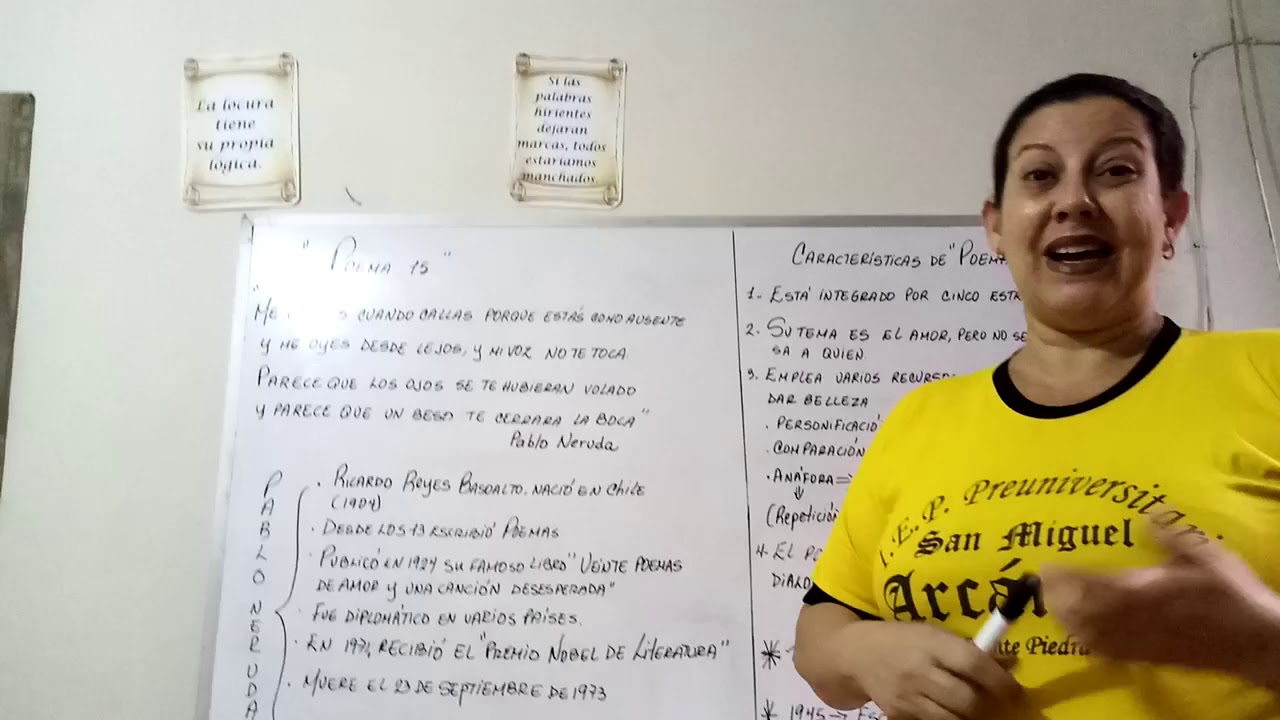 La locura
tiene
su propia
lógica.
Si las
palabras
hirientes
dejaran
marcas, todos
estaríamos
manchados.
"POEMA 15"
"ME CUANDO CALLAS PORQUE ESTÁS COMO AUSENTE
Y ME OYES DESDE LEJOS, Y MI VOZ NO TE TOCA.
PARECE QUE LOS OJOS SE TE HUBIERAN VOLADO
Y PARECE QUE UN BESO TE CERRARA LA BOCA"
Pablo Neruda
PABLO NERUDA
. RICARDO REYES BASOALTO. NACIÓ EN CHILE
(1904)
. DESDE LOS 13 ESCRIBIÓ POEMAS
. PUBLICÓ EN 1924 SU FAMOSO LIBRO "VEINTE POEMAS
DE AMOR Y UNA CANCIÓN DESESPERADA"
. FUE DIPLOMÁTICO EN VARIOS PAÍSES.
. EN 1971, RECIBIÓ EL "PREMIO NOBEL DE LITERATURA"
. MUERE EL 23 DE SEPTIEMBRE DE 1973
CARACTERÍSTICAS DE "POEMA
1.- ESTÁ INTEGRADO POR CINCO ESTR
2. SU TEMA ES EL AMOR, PERO NO SE
SA A QUIEN
3. EMPLEA VARIOS RECURSO
DAR BELLEZA
. PERSONIFICACIÓ
. COMPARACIÓN
. ANÁFORA =>
(Repetición
4. EL PO
DIALO
*
* 1945 → ESC
I.E.P. Preuniversitari
San Miguel
Arcá
nte Piedra